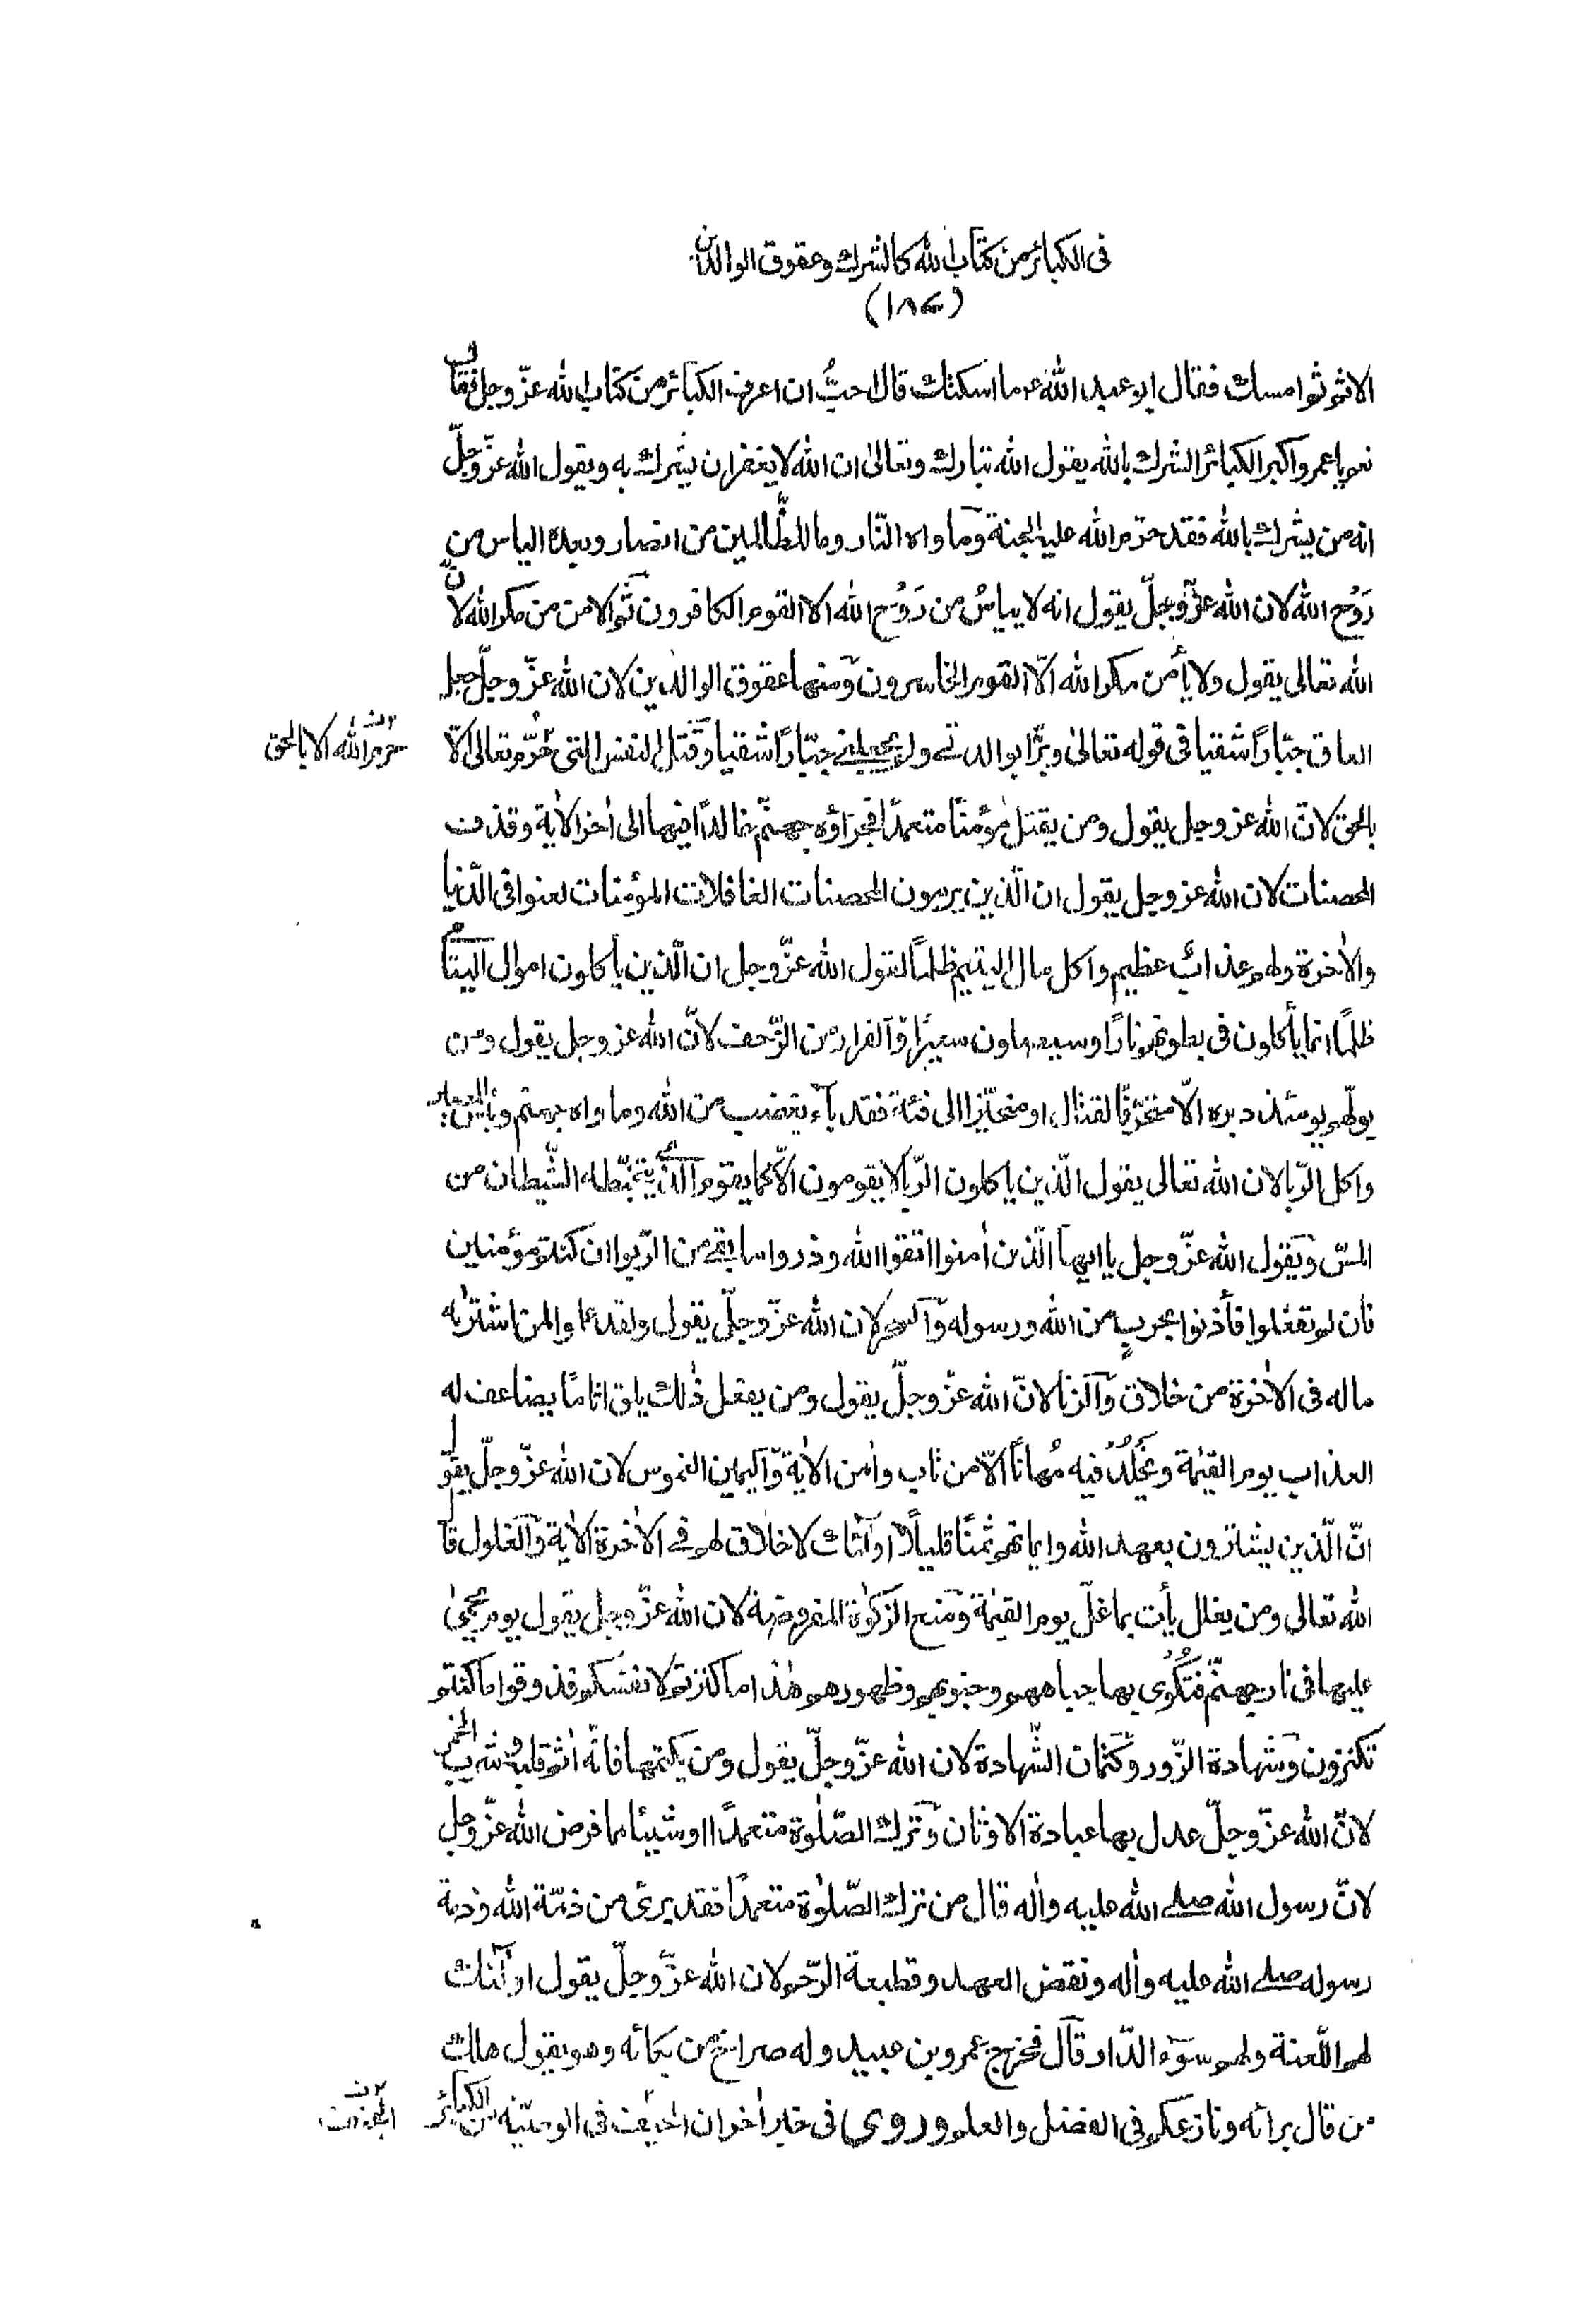 فى الكبائر من كتاب الله كالشرك وعقوق الوالدين
الاثم ثم امسك فقال ابو عبد الله ع ما اسكتك قال احبُّ ان اعرف الكبائر من كتاب الله عزّ وجل فقال
نعم يا عمرو اكبر الكبائر الشرك بالله يقول الله تبارك وتعالى ان الله لا يغفر ان يشرك به ويقول الله عزّ وجلّ
انه من يشرك بالله فقد حرّم الله عليه الجنة وماواه النّار وما للظّالمين من انصار وبعده الياس من
رَوْح الله لان الله عزّ وجلّ يقول انه لا يياسُ من رَوْح الله الا القوم الكافرون ثم الامن من مكر الله لانّ
الله تعالى يقول ولا يأمن مكر الله الّا القوم الخاسرون ومنها عقوق الوالدين لان الله عزّ وجلّ جعل
العاق جبّارًا شقيا فى قوله تعالى وبرًّا بوالدتى ولم يجعلنى جبّارًا شقيا وقتل النفس التى حرّم تعالى الّا
حرم الله الا بالحق
بالحق لانّ الله عز وجل يقول ومن يقتل مؤمنًا متعمدًا فجزاؤه جهنّم خالدًا فيها الى اٰخر الاٰية وقذف
المحصنات لان الله عز وجل يقول ان الّذين يرمون المحصنات الغافلات المؤمنات لعنوا فى الدّنيا
والاٰخرة ولهم عذابٌ عظيم واكل مال اليتيم ظلمًا لقول الله عزّ وجل ان الّذين يأكلون اموال اليتامى
ظلمًا انما يأكلون فى بطونهم نارًا وسيصلون سعيرًا والفرار من الزّحف لانّ الله عز وجل يقول ومن
يولّهم يومئذ دبره الّا متحرّفًا لقتال او متحيّزا الى فئة فقد باء بغضب من الله وماواه جهنّم وبئس المصير
واكل الرّبا لان الله تعالى يقول الّذين ياكلون الرّبا لا يقومون الّا كما يقوم الّذى يتخبّطه الشّيطان من
المسّ ويقول الله عزّ وجل يا ايها الّذين اٰمنوا اتّقوا الله وذروا ما بقى من الرّبوا ان كنتم مؤمنين
فان لم تفعلوا فأذنوا بحربٍ من الله ورسوله والسحر لان الله عزّ وجلّ يقول ولقد علموا لمن اشتراه
ما له فى الاٰخرة من خلاق والزنا لانّ الله عزّ وجلّ يقول ومن يفعل ذٰلك يلق اثامًا يضاعف له
العذاب يوم القيٰمة ويَخْلُدْ فيه مُهانًا الّا من تاب واٰمن الاٰية واليمين الغموس لان الله عزّ وجلّ يقول
انّ الّذين يشترون بعهد الله وايمانهم ثمنًا قليلًا اولٰئك لا خلاق لهم فى الاٰخرة الاٰية والغلول قال
الله تعالى ومن يغلل يأت بما غلّ يوم القيٰمة ومنع الزكوٰة المفروضة لان الله عزّ وجل يقول يوم يحمىٰ
عليها فى نار جهنّم فتُكْوٰى بها جباههم وجنوبهم وظهورهم هٰذا ما كنزتم لانفسكم فذوقوا ما كنتم
تكنزون وشهادة الزّور وكتمان الشّهادة لان الله عزّ وجلّ يقول ومن يكتمها فانّه اٰثم قلبه وشرب الخمر
لانّ الله عزّ وجلّ عدل بها عبادة الاوثان وترك الصّلوٰة متعمدًا او شيئا مما فرض الله عزّ وجل
لانّ رسول الله صلى الله عليه واٰله قال من ترك الصّلوٰة متعمدًا فقد برئ من ذمّة الله وذمة
رسوله صلى الله عليه واٰله ونقض العهد وقطيعة الرّحم لان الله عزّ وجلّ يقول اولٰئك
لهم اللّعنة ولهم سوٓء الدّار قال فخرج عمرو بن عبيد وله صراخ من بكائه وهو يقول هلك
من قال برائه ونازعكم فى الفضل والعلم وروى فى خبر اٰخر ان الحيف فى الوصيّة من الكبائر